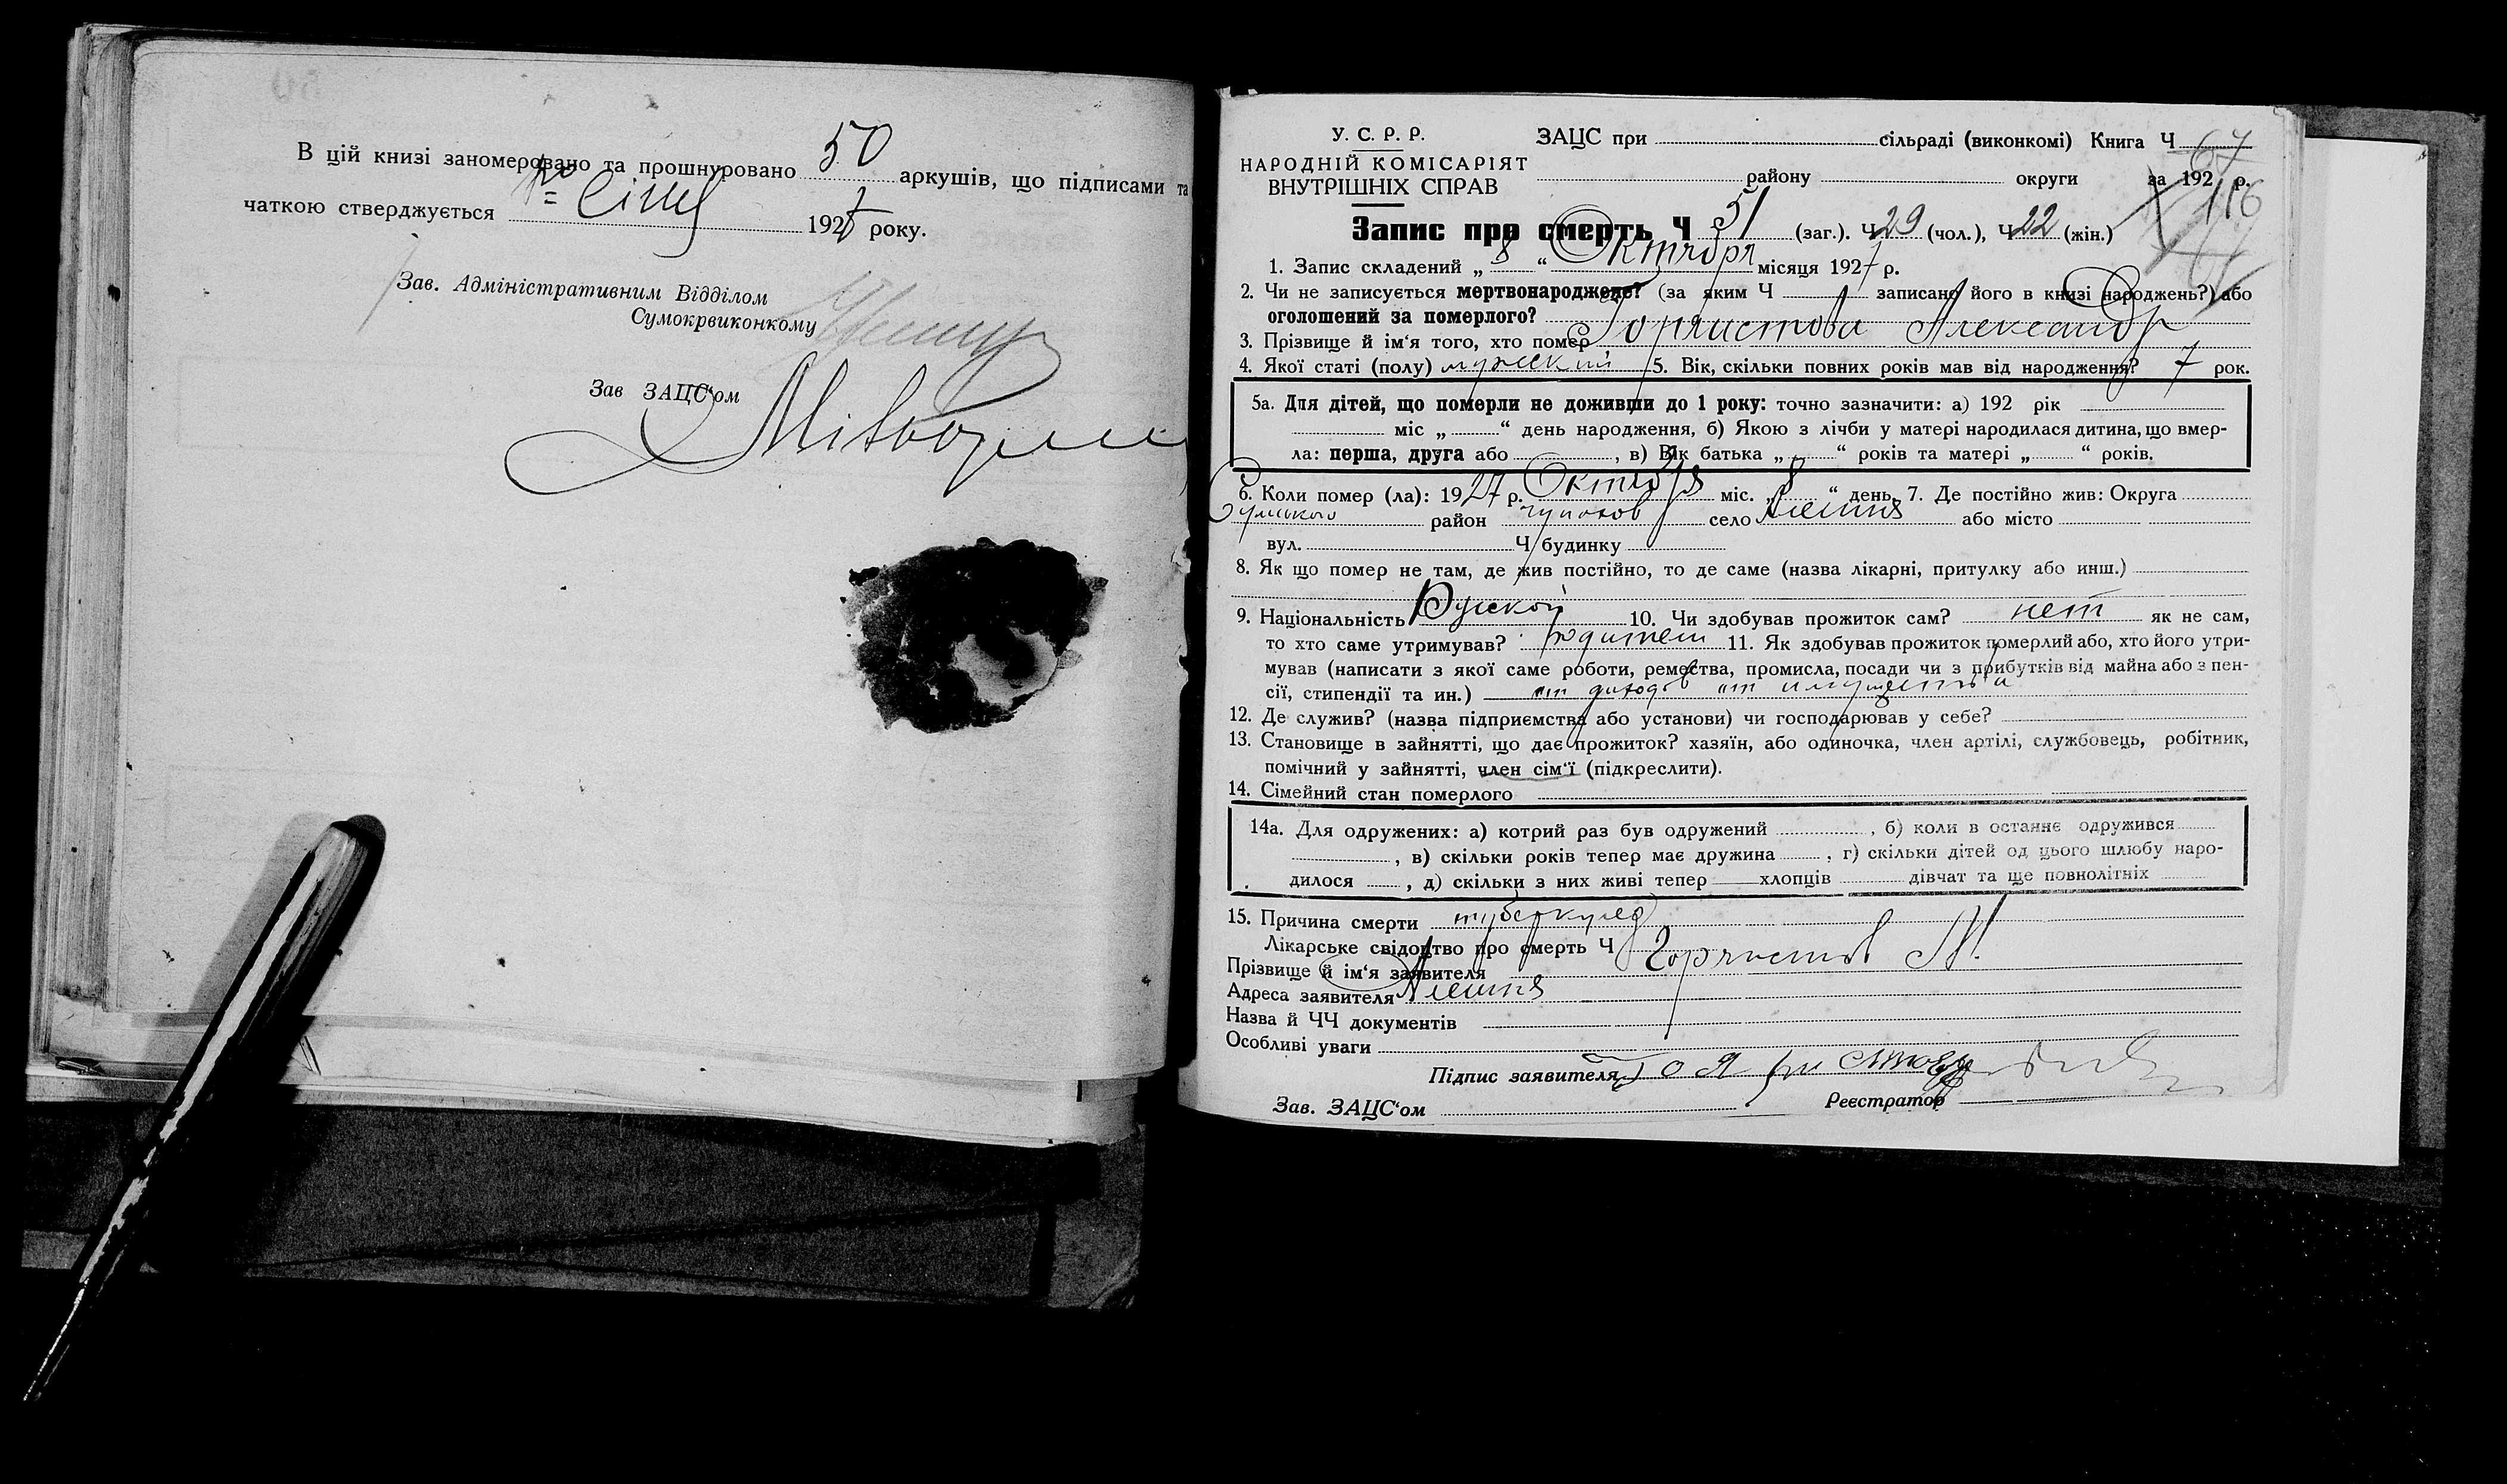 В цій книзі заномеровано та прошнуровано 50 аркушів, що підписами та
чаткою стверджується 192 року.
Зав. Адміністративним Відділом
Сумокрвиконкому
Зав ЗАЦС'ом
У. С. Р. Р. ЗАЦС при сільраді (виконкомі) Книга Ч 67
НАРОДНІЙ КОМІСАРІЯТ
ВНУТРІШНІХ СПРАВ
району округи за 192 р.
116
Запис про смерть Ч 51 (заг.). Ч 29 (чол.), Ч 22 (жін.)
1. Запис складений „ 8 “ Октября місяця 1927 р.
2. Чи не записується мертвонароджене? (за яким Ч записано його в книзі народжень?) або
оголошений за померлого?
3. Прізвище й ім‘я того, хто помер Горяистова Александр
4. Якої статі (полу) мужский 5. Вік, скільки повних років мав від народження? 7 рок.
5а. Для дітей, що померли не доживши до 1 року: точно зазначити: а) 192 рік
міс „ “ день народження, б) Якою з лічби у матері народилася дитина, що вмер-
ла: перша, друга або , в) Вік батька „ “ років та матері „ “ років.
6. Коли помер (ла): 1927 р. Октября міс. „ 8 “ день. 7. Де постійно жив: Округа
Сумського район село або місто
вул. Ч будинку
8. Як що помер не там, де жив постійно, то де саме (назва лікарні, притулку або инш.)
9. Національність Руской 10. Чи здобував прожиток сам? нет як не сам,
то хто саме утримував? родители 11. Як здобував прожиток померлий або, хто його утри-
мував (написати з якої саме роботи, ремества, промисла, посади чи з прибутків від майна або з пен-
сії, стипендії та ин.) от доходов от имущества
12. Де служив? (назва підприємства або установи) чи господарював у себе?
13. Становище в зайнятті, що дає прожиток? хазяїн, або одиночка, член артілі, службовець, робітник,
помічний у зайнятті, член сім‘ї (підкреслити).
14. Сімейний стан померлого
14а. Для одружених: а) котрий раз був одружений , б) коли в останнє одружився
, в) скільки років тепер має дружина , г) скільки дітей од цього шлюбу наро-
дилося , д) скільки з них живі тепер хлопців дівчат та ще повнолітніх
15. Причина смерти туберкулез
Лікарське свідоцтво про смерть Ч
Прізвище й ім‘я заявителя М.
Адреса заявителя
Назва й ЧЧ документів
Особливі уваги
Підпис заявителя
Зав. ЗАЦС‘ом Реєстратор